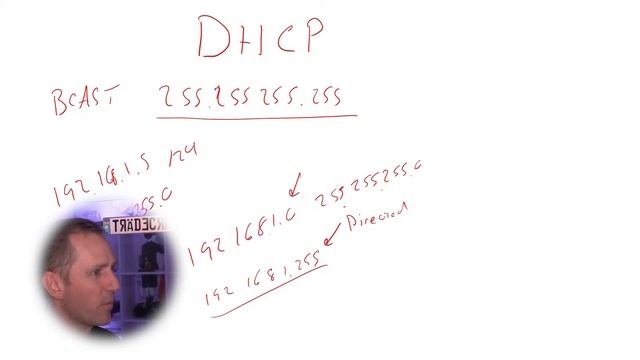 DHCP
BCAST 255.255 255.255
192.168.1.5 /24
255.0
192 168.1.0 255.255.255.0
Directed
192 168 1.255